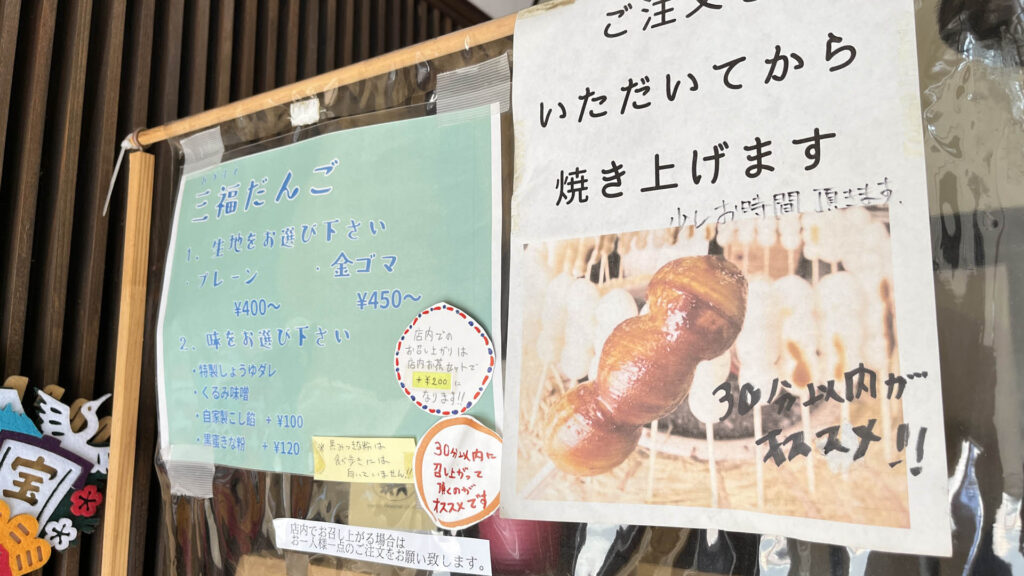 三福だんご
1. 生地をお選び下さい
・プレーン ・金ゴマ
¥400～ ¥450～
2. 味をお選び下さい
・特製しょうゆダレ
・くるみ味噌
・自家製こし餡 +¥100
・黒蜜きな粉 +¥120
店内での
お召し上がりは
店内お茶セットで
+¥200に
なります!!
食べ歩きには
向いていません!!
30分以内に
召し上がって
頂くのが
オススメです
店内でお召し上がる場合は
お一人様一点のご注文をお願い致します。
ご注文を
いただいてから
焼き上げます
少しお時間頂きます。
30分以内が
オススメ!!
宝